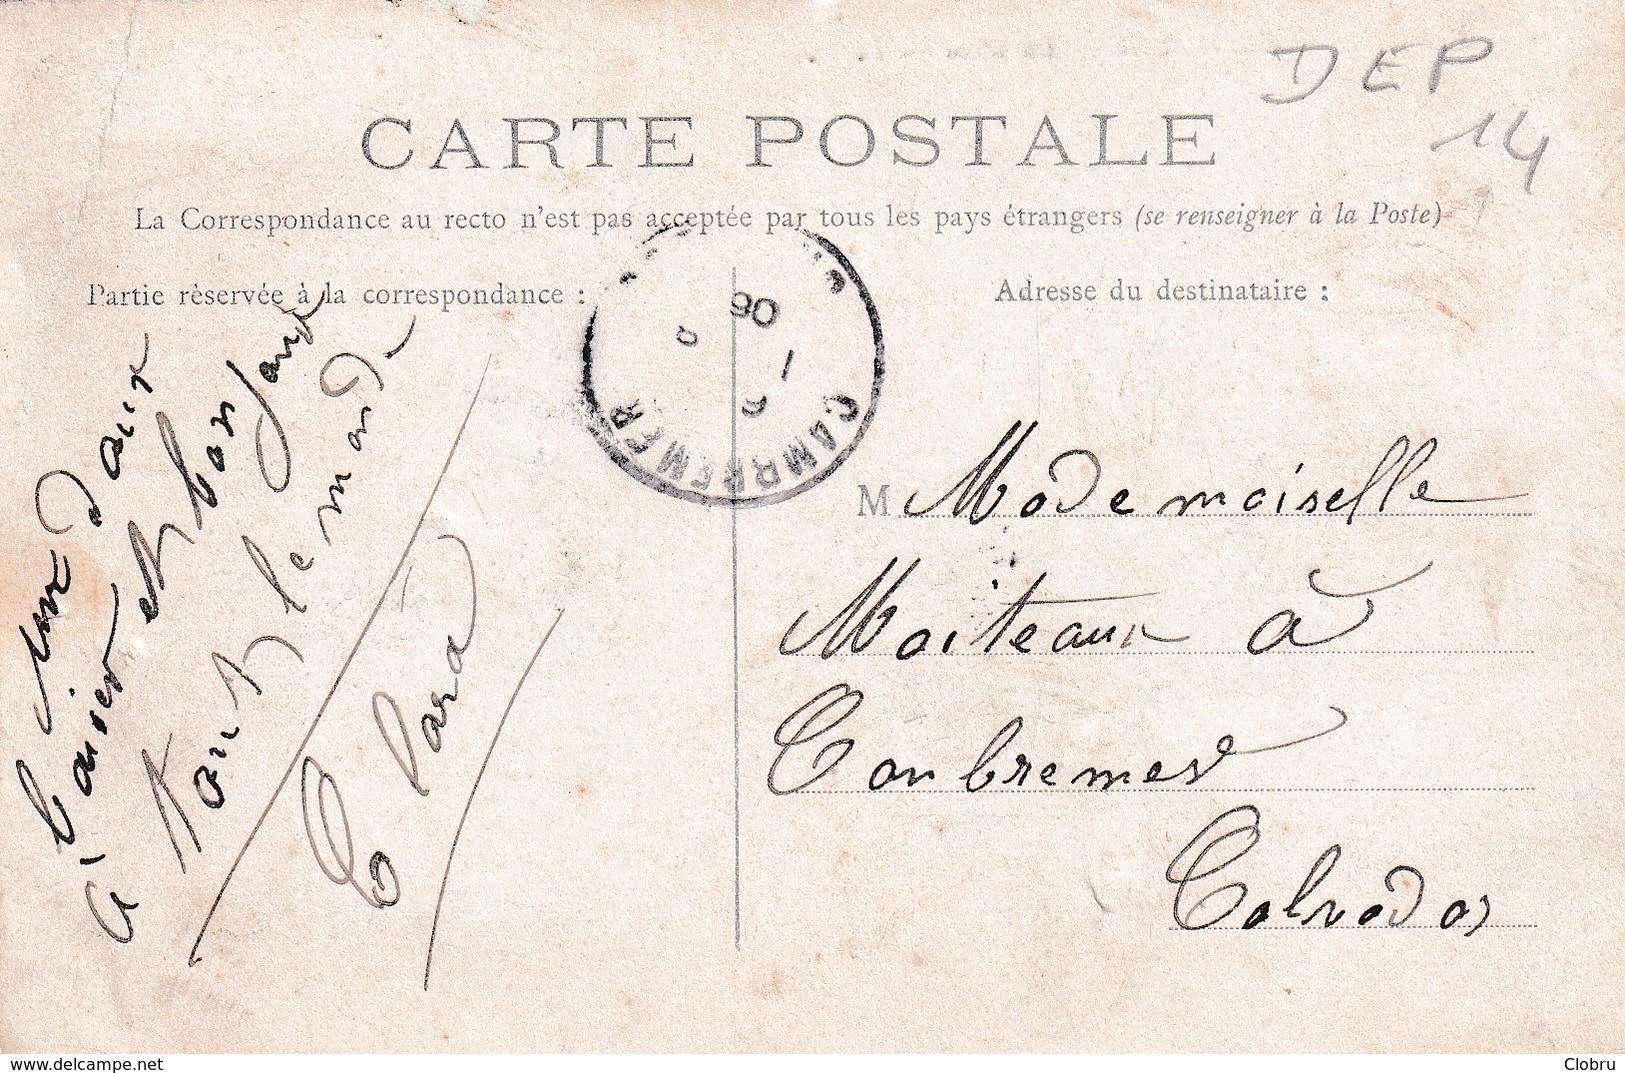 DEP
14
CARTE POSTALE
La Correspondance au recto n'est pas acceptée par tous les pays étrangers (se renseigner à la Poste)
Partie réservée à la correspondance :
Adresse du destinataire :
un Doux
baiser et bon jour
à tout le monde
Clara
CAMBREMER
06
M Mademoiselle
Moiteaux à
Conbremer
Calvados
delcampe.net
Clobru